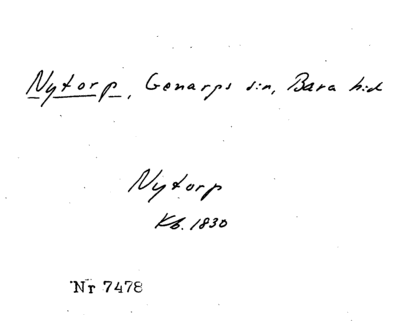 Nytorp, Genarps s:n, Bara h:d
Nytorp
Kb. 1830
Nr 7478